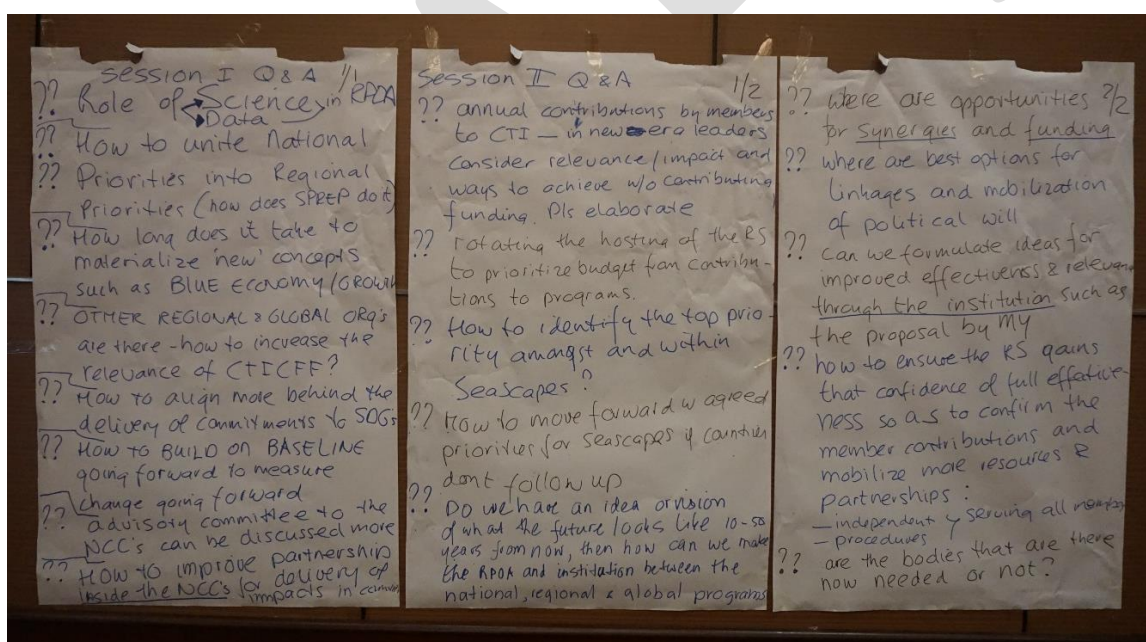 Session I Q & A 1/1
?? Role of Science in RPOA
Data
?? How to unite National
?? Priorities into Regional
Priorities (how does SPREP do it)
?? How long does it take to
materialize 'new' concepts
such as BLUE ECONOMY/GROWTH
?? OTHER REGIONAL & GLOBAL ORG's
are there - how to increase the
relevance of CTICFF?
?? How to align more behind the
delivery of commitments to SDGs
?? How to BUILD ON BASELINE
going forward to measure
change going forward
?? advisory committee to the
NCC's can be discussed more
?? How to improve partnership
inside the NCC's for delivery of
impacts in
Session II Q & A 1/2
?? annual contributions by members
to CTI — in new era leaders
consider relevance/impact and
ways to achieve w/o contributing
funding. Pls elaborate
?? rotating the hosting of the RS
to prioritize budget from contribu-
tions to programs.
?? How to identify the top prio-
rity amongst and within
Seascapes?
?? How to move forward w agreed
priorities for seascapes if countries
dont follow up
?? Do we have an idea or vision
of what the future looks like 10-50
years from now, then how can we make
the RPOA and institution between the
national, regional & global programs
?? where are opportunities 2/2
for synergies and funding
?? where are best options for
linkages and mobilization
of political will
?? can we formulate ideas for
improved effectiveness & relevance
through the institution such as
the proposal by MY
?? how to ensure the RS gains
that confidence of full effective-
ness so as to confirm the
member contributions and
mobilize more resources &
partnerships:
— independent serving all members
— procedures
?? are the bodies that are there
now needed or not?